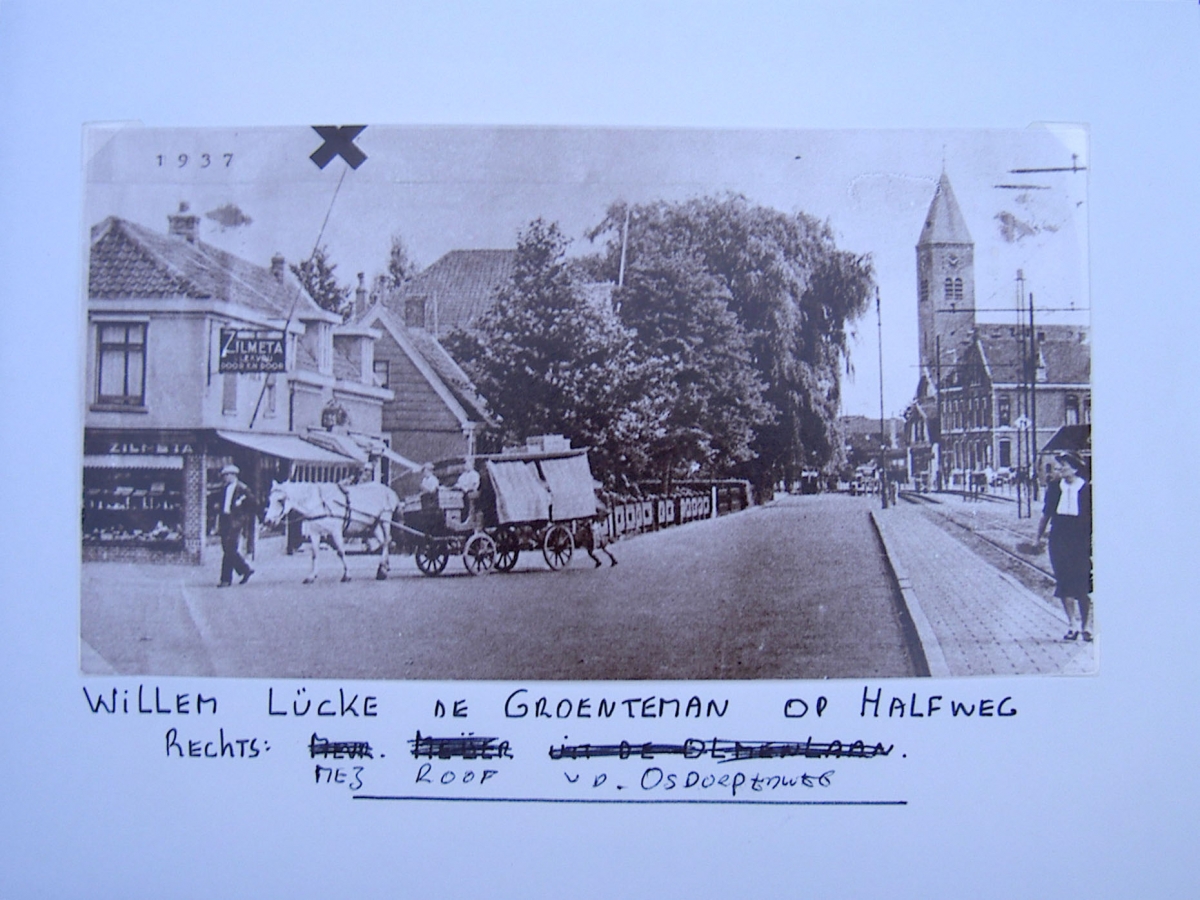 1937
ZILMETA
DOOR EN DOOR
ZILMETA
WiLLEM LÜCKE DE GROENTEMAN OP HALFWEG
RECHTS: MEVR. MEIJER UIT DE OLMENLAAN.
MEJ ROOF V D. OSDORPERWEG